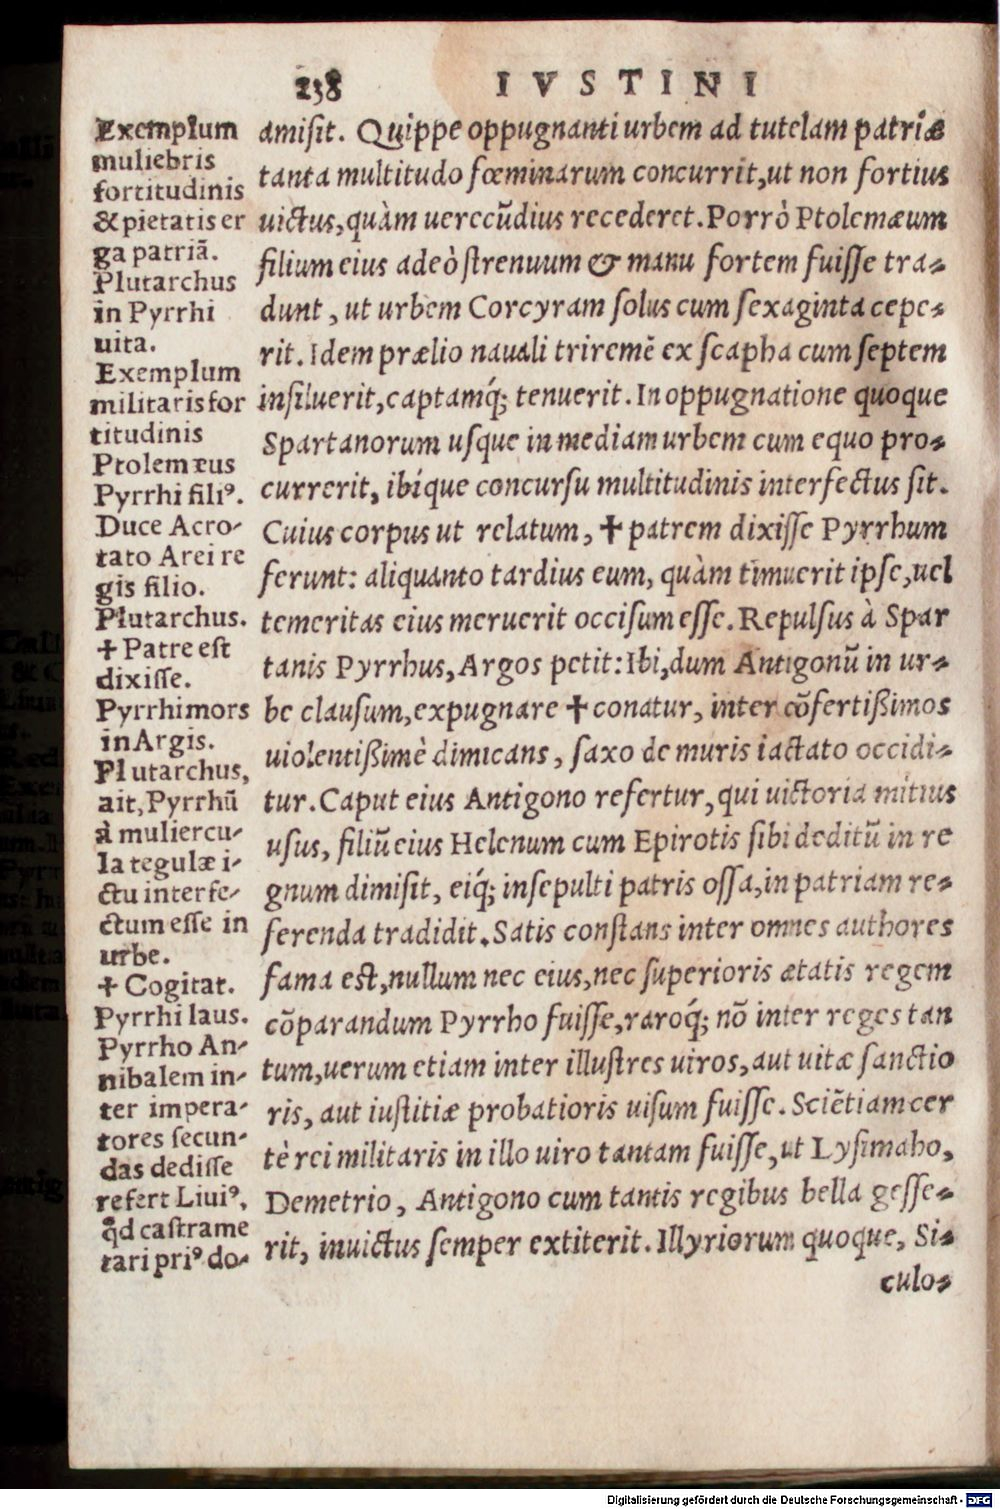 238 IVSTINI
Exemplum
muliebris
fortitudinis
& pietatis er
ga patriã.
Plutarchus
in Pyrrhi
uita.
Exemplum
militaris for
titudinis
Ptolemæus
Pyrrhi fili⁹.
Duce Acro-
tato Arei re
gis filio.
Plutarchus.
✝ Patre est
dixisse.
Pyrrhi mors
in Argis.
Plutarchus,
ait, Pyrrhũ
à muliercu-
la tegulæ i-
ctu interfe-
ctum esse in
urbe.
✝ Cogitat.
Pyrrhi laus.
Pyrrho An-
nibalem in-
ter impera-
tores secun-
das dedisse
refert Liui⁹,
qd castrame
tari pri⁹ do-
amisit. Quippe oppugnanti urbem ad tutelam patriæ
tanta multitudo fœminarum concurrit, ut non fortius
uictus, quàm uerecũdius recederet. Porrò Ptolemæum
filium eius adeò strenuum & manu fortem fuisse tra-
dunt, ut urbem Corcyram solus cum sexaginta cepe-
rit. Idem prælio nauali triremẽ ex scapha cum septem
insiluerit, captamq́; tenuerit. In oppugnatione quoque
Spartanorum usque in mediam urbem cum equo pro-
currerit, ibíque concursu multitudinis interfectus sit.
Cuius corpus ut relatum, ✝ patrem dixisse Pyrrhum
ferunt: aliquanto tardius eum, quàm timuerit ipse, uel
temeritas eius meruerit occisum esse. Repulsus à Spar
tanis Pyrrhus, Argos petit: Ibi, dum Antigonũ in ur-
be clausum, expugnare ✝ conatur, inter cõfertißimos
uiolentißimè dimicans, saxo de muris iactato occidi-
tur. Caput eius Antigono refertur, qui uictoria mitius
usus, filiũ eius Helenum cum Epirotis sibi deditũ in re
gnum dimisit, eiq́; insepulti patris ossa, in patriam re-
ferenda tradidit. Satis constans inter omnes authores
fama est, nullum nec eius, nec superioris ætatis regem
cõparandum Pyrrho fuisse, raroq́; nõ inter reges tan
tum, uerum etiam inter illustres uiros, aut uitæ sanctio
ris, aut iustitiæ probatioris uisum fuisse. Sciẽtiam cer
tè rei militaris in illo uiro tantam fuisse, ut Lysimaho,
Demetrio, Antigono cum tantis regibus bella gesse-
rit, inuictus semper extiterit. Illyriorum quoque, Si-
culo-
Digitalisierung gefördert durch die Deutsche Forschungsgemeinschaft - DFG